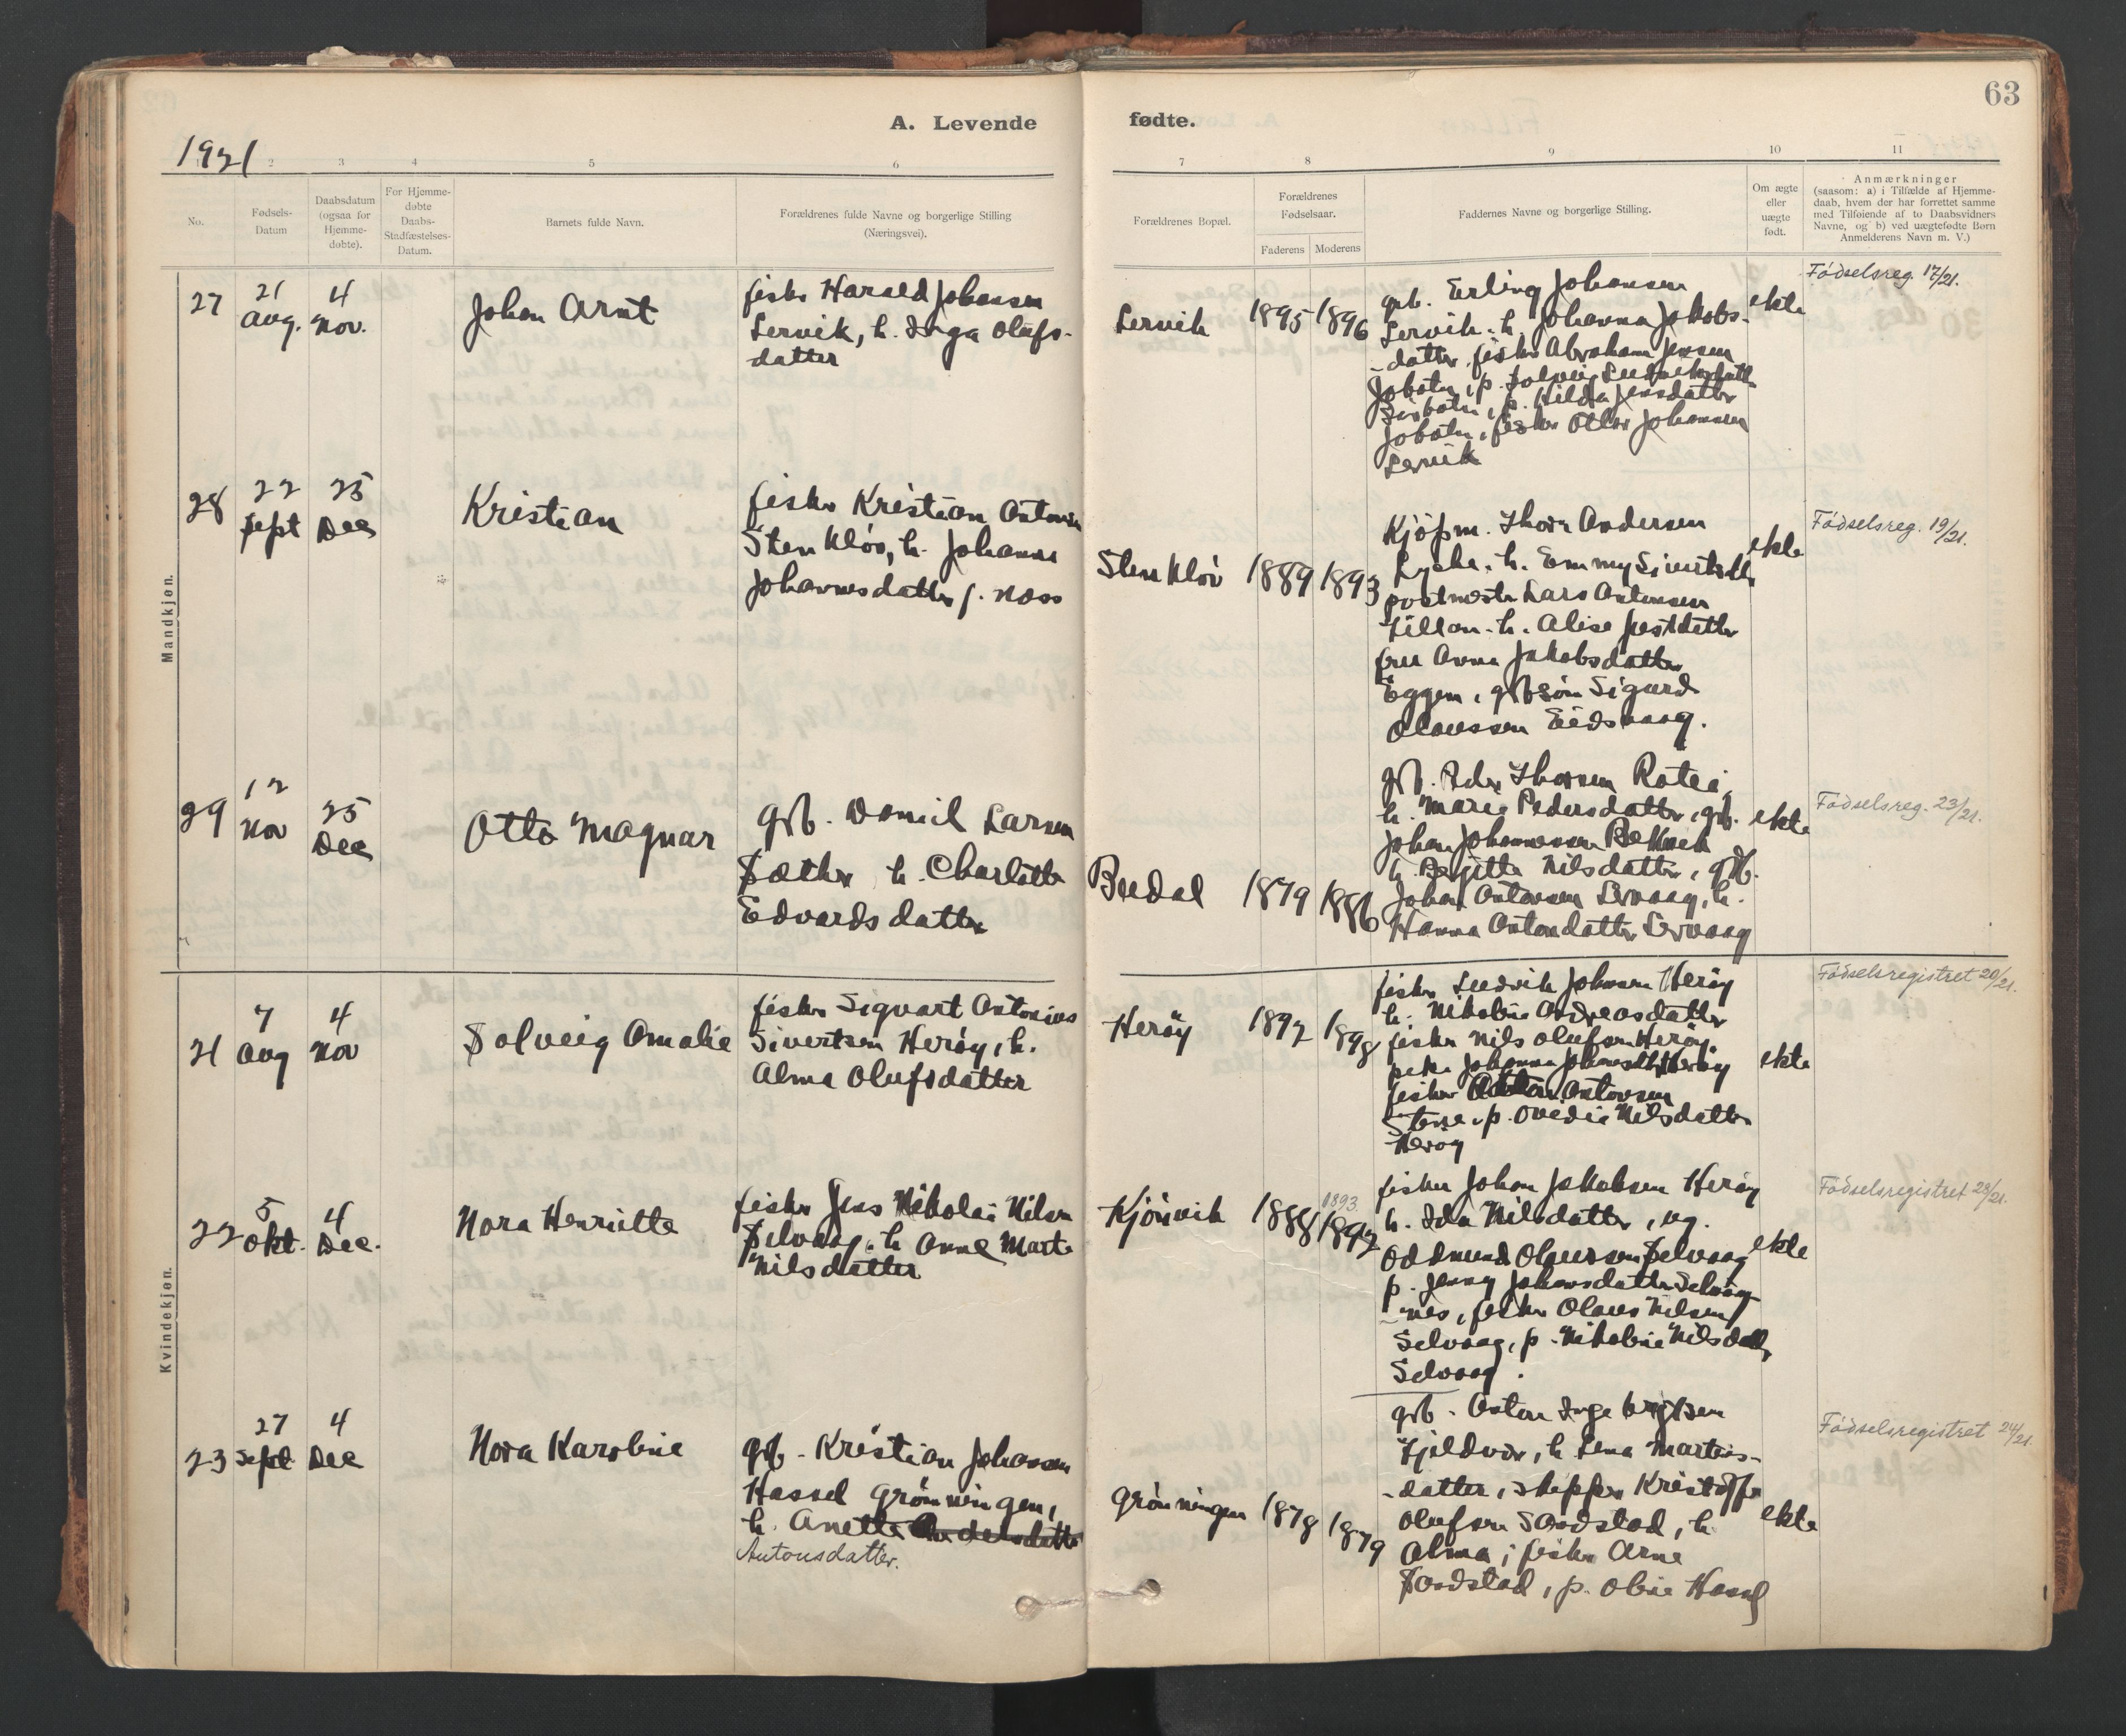 63
A. Levende fødte.
1921
2
3
4
5
6
7
8
9
10
11
No.
Fødsels-
Datum
Daabsdatum
(ogsaa for
Hjemme-
døbte).
For Hjemme-
døbte
Daabs-
Stadfæstelses-
Datum.
Barnets fulde Navn.
Forældrenes fulde Navne og borgerlige Stilling
(Næringsvei).
Forældrenes Bopæl.
Forældrenes
Fødselsaar.
Faderens
Moderens
Faddernes Navne og borgerlige Stilling.
Om ægte
eller
uægte
født.
Anmærkninger
(saasom: a) i Tilfælde af Hjemme-
daab, hvem der har forrettet samme
med Tilføiende af to Daabsvidners
Navne, og b) ved uægtefødte Børn
Anmelderens Navn m. V.)
Mandkjøn.
27
21
aug.
4
nov.
Johan Arnt
fisker Harald Johansen
Lervik, h. Inga Olufs-
datter
Lervik
1895
1896
grb. Erling Johansen
Lervik. h. Johanna Jakobs-
-datter, fisker Abraham Jensen
Jobotn, p. Solveig
p. Hilda Jensdatter
Jobotn, fisker Otto Johansen
Lervik
ekte
Fødselsreg. 17/21.
28
22
sept
25
Dec
Kristian
fisker Kristian Antonsen
Stenkløv, h. Johanna
Johannesdatter f. Moss
Stenkløv
1889
1893
Kjøpm. Thor Andersen
h. Emmy Sivertsdtr
postmester Lars Antonsen
Fillan. h. Alise
fru Anna Jakobsdatter
Eggen, grb søn Sigurd
Olaussen Eidsvaag.
ekte
Fødselsreg. 19/21.
29
12
Nov
25
Dec
Otto Magnar
grb. Daniel Larsen
Sæther h. Charlotte
Edvardsdatter
Bædal
1879
1886
grb. Peder Thorsen
h. Marie Pedersdatter, grb.
Johan Johannessen Bekvik
h. Bergitte Nilsdatter, grb.
Johan Antonsen Lervaag, h.
Hanna Antondatter Lervaag
ekte
Fødselsreg. 23/21.
Kvindekjøn.
21
7
aug
4
nov
Solveig Amalie
fisker Sigvart Antonius
Sivertsen Herøy, h.
Alma Olufsdatter
Herøy
1892
1898
fisker Ludvik Johnsen Herøy
h. Nikoline Andreasdatter
fisker Nils Olufsen Herøy.
pike Johanna Herøy
fisker Antonsen
p. Ovedia Nilsdatter
Herøy
ekte
Fødselsregistret 20/21.
22
5
Okt.
4
Dec.
Nora Henriette
fisker Jens Nikolai Nilsen
Selvaag, h. Anne Marta
Nilsdatter
Kjønvik
1888
1893.
1892
fisker Johan Jakobsen Herøy
h. Ida Nilsdatter, ug.
Oddmund Olaussen Selvaag
p. Jenny Johansdatter Selvaag-
-nes, fisker Olaus Nilsen
Selvaag, p. Nikoline Nilsdatter
Selvaag.
ekte
Fødselsregistret 28/21.
23
27
Sept
4
Dec
Nora Karoline
grb. Kristian Johansen
Hassel Grønningen,
h. Anette Andersdatter
Antonsdatter.
Grønningen
1878
1879
grb. Anton Ingebrigtsen
Fjeldvær, h. Lena Martins-
-datter, skipper Kristoffer
Olufsen Sandstad, h.
Alma; fisker Arne
Sandstad, p. Oline Hassel
ekte
Fødselsregistret 24/21.